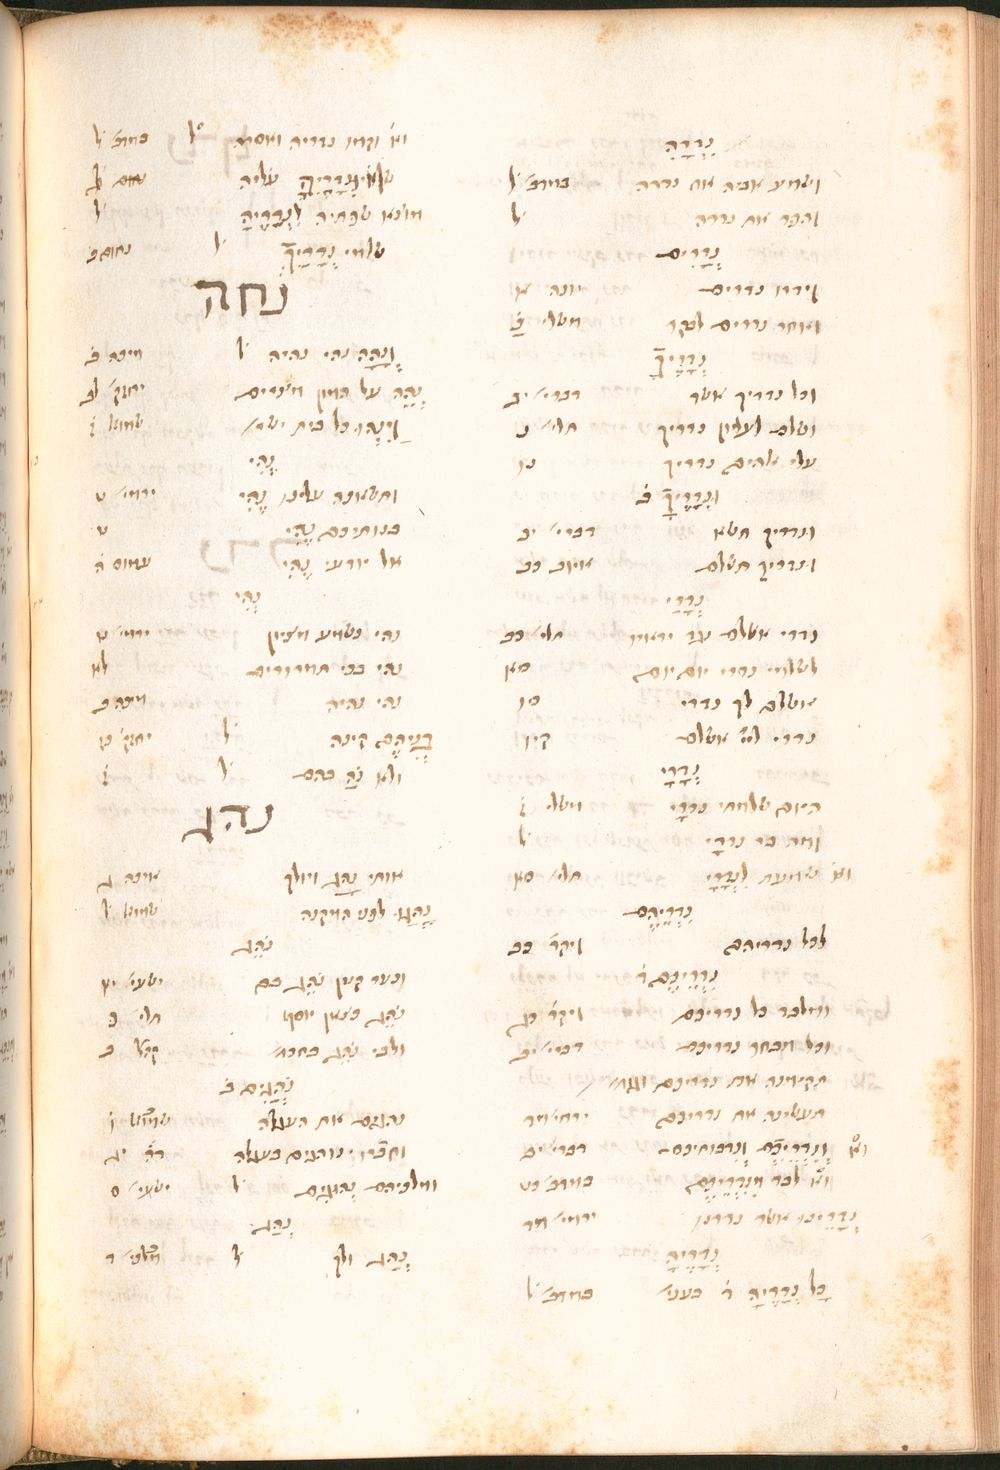 נִדְרָהּ
ושמע אביה את נדרה במדב׳ ל
והפר את נדרה ל
נְדָרִים
וידרו נדרים יונה א
ואחר נדרים לבקר משלי כ
נְדָרֶיךָ
וכל נדריך אשר דברי׳ יב
ושלם לעליון נדריך תלי׳ נ
עלי אלהים נדריך נו
וּנְדָרֶיךָ ב
ונדריך תשא דברי׳ יב
ונדריך תשלם איוב כב
נְדָרַי
נדרי אשלם נגד יראיו תלי׳ כב
לשלמי נדרי יום יום סא
אשלם לך נדרי סו
נדרי לײ אשלם קיו
נְדָרָי
היום שלמתי נדרָי משלי ז
ומה בר נדרָי ל
שמעת לִנְדָרָי תלי׳ סא
נִדְרֵיהֶם
לכל נדריהם ויקר׳ כב
נִדְרֵיכֶם ד
ומלבד כל נדריכם ויקר׳ כג
וכל מבחר נדריכם דברי׳ יב
תקימנה את נדריכם
תעשינה את נדריכם ירמי׳ מד
וּנְדָרֶיךָ ונדבותיכם דברי׳ יב
לבד מִנִּדְרֵיכֶם במדב׳ כט
נְדָרֵינוּ אשר נדרנו ירמי׳ מד
נְדָרֶיהָ
כָל נְדָרֶיהָ ד בענין במדב׳ ל
וקמו נדריה ואסריה ל במדב׳ ל
עליה
מוצא שפתיה לִנְדָרֶיהָ ל
שלמי נְדָרָיִךְ ל נחום ב
נהה
וְנָהָה נהי נהיה ל מיכה ב
נְהֵה על המון מצרים יחזק׳ לב
וַיִּנָּהוּ כל בית ישר׳ שמוא׳ ז
נֶהִי
ותשאנה עלינו נֶהִי ירמי׳ ט
בנותיכם נֶהִי ט
אל יודעי נֶהִי עמוס ה
נְהִי
נהי נשמע מציון ירמי׳ ט
נהי בכי תמרורים לא
נהי נהיה מיכה ב
בְּנִיהֶם קינה ל יחזק׳ כז
ולא נֹהַּ בהם ל ז
נהג
אותי נָהַג ויולך איכה ג
נָהֲגוּ לפני המקנה שמוא׳ ל
נֹהֵג
ונער קטן נֹהֵג בם ישעי׳ יא
נֹהֵג כצאן יוסף תלי׳ פ
ולבי נֹהֵג בחכמ׳ קהל׳ ב
נֹהֲגִים ב
נהגים את העגלה שמוא׳ ו
נוהגים בעגלה
ומלכיהם נְהוּגִים ל ישעי׳ ס
נְהַג
נְהַג ולך ל מלכי׳ ד